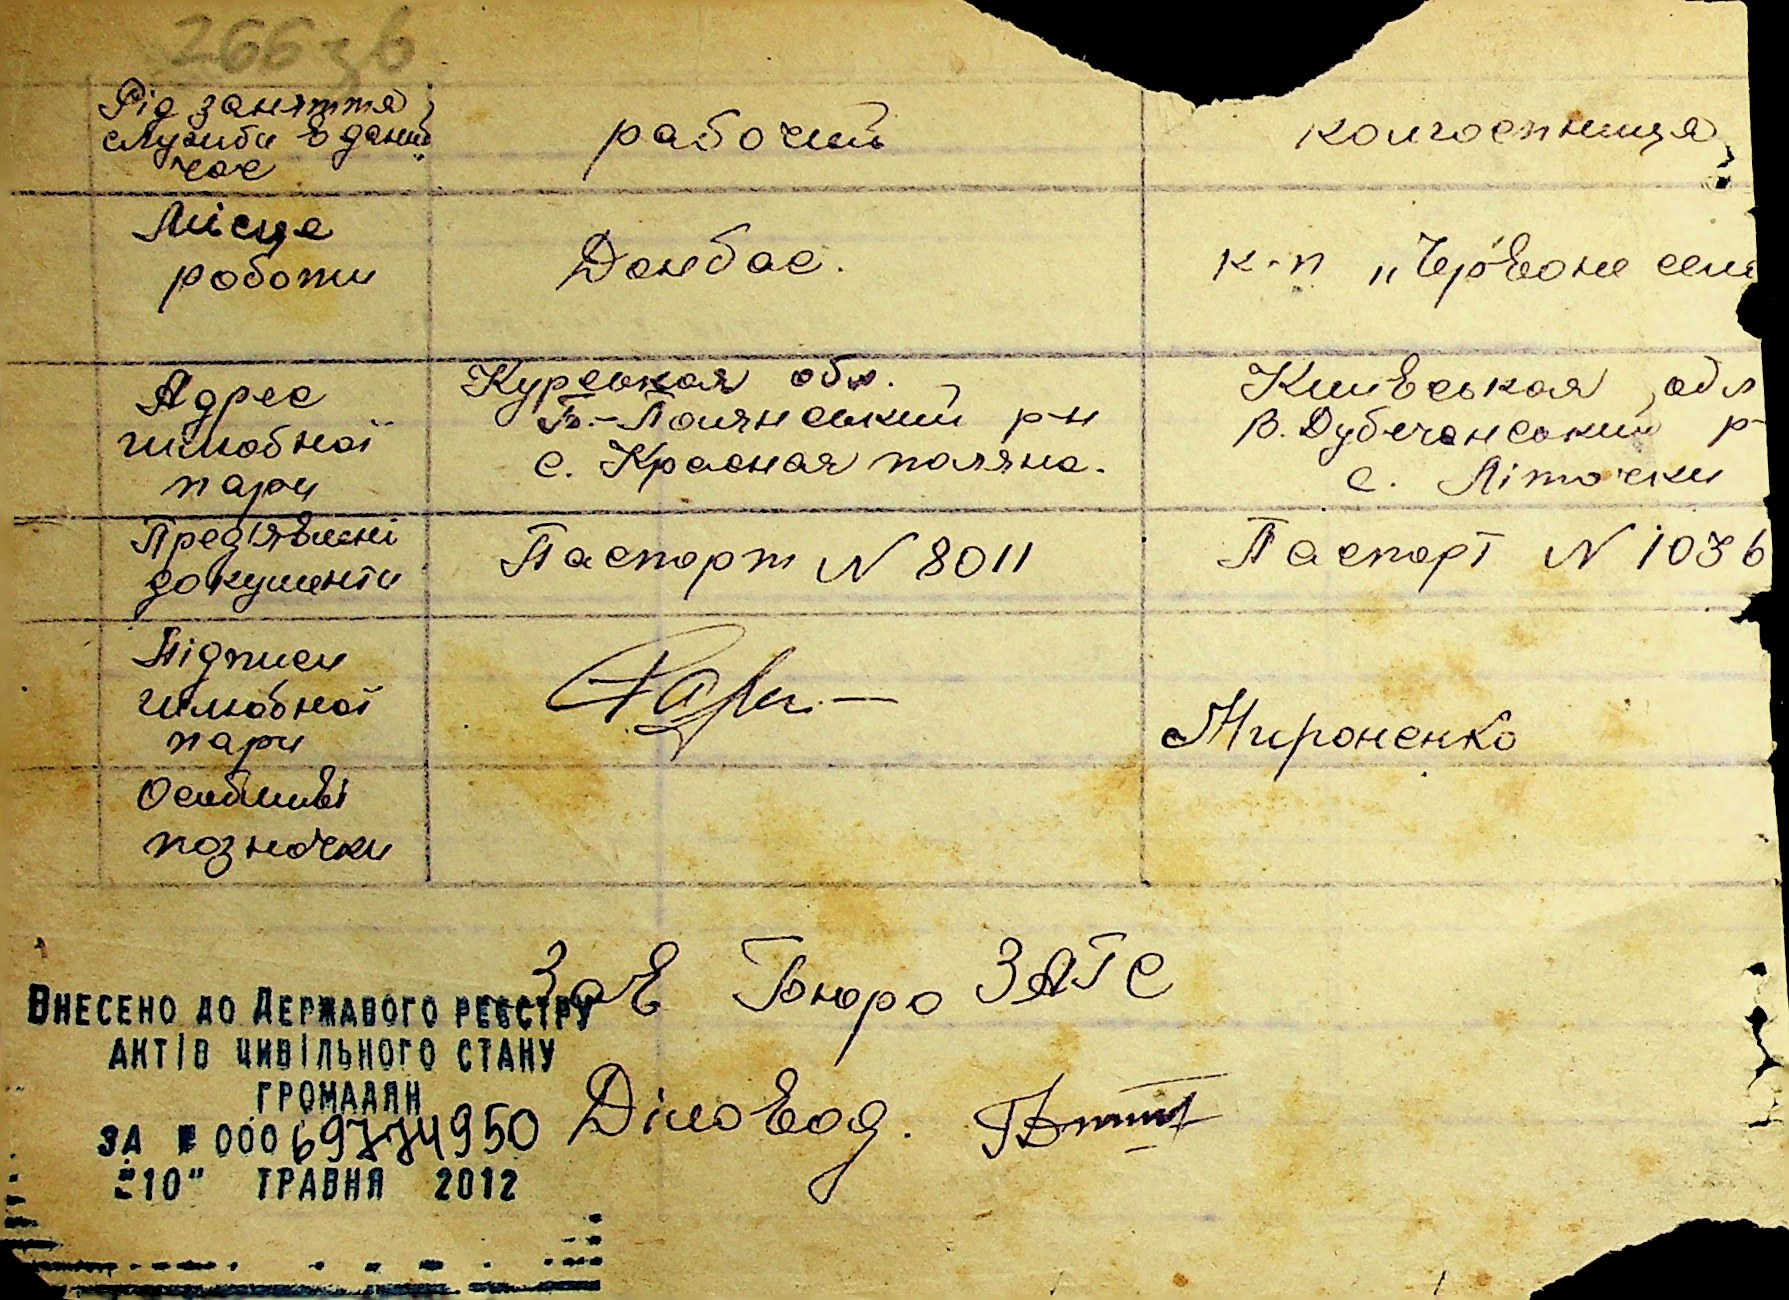 266 зв
Рід заняття,
служби в даний
час
рабочий
колгоспниця
Місце
роботи
Донбас.
к-п „Червоне село
Адрес
шлюбної
пари
Курськая обл.
Б.-Полянський р-н
с. Красная поляна.
Київськая обл
В. Дубечанський р-
с. Літочки
Пред'явлені
документи
Паспорт N 8011
Паспорт N 1036
Підписи
шлюбної
пари
Мироненко
Особливі
позночки
Зав Бюро ЗАГС
Діловод.
Внесено до Державого реєстру
актів цивільного стану
громадян
за № 00069774950
"10" травня 2012